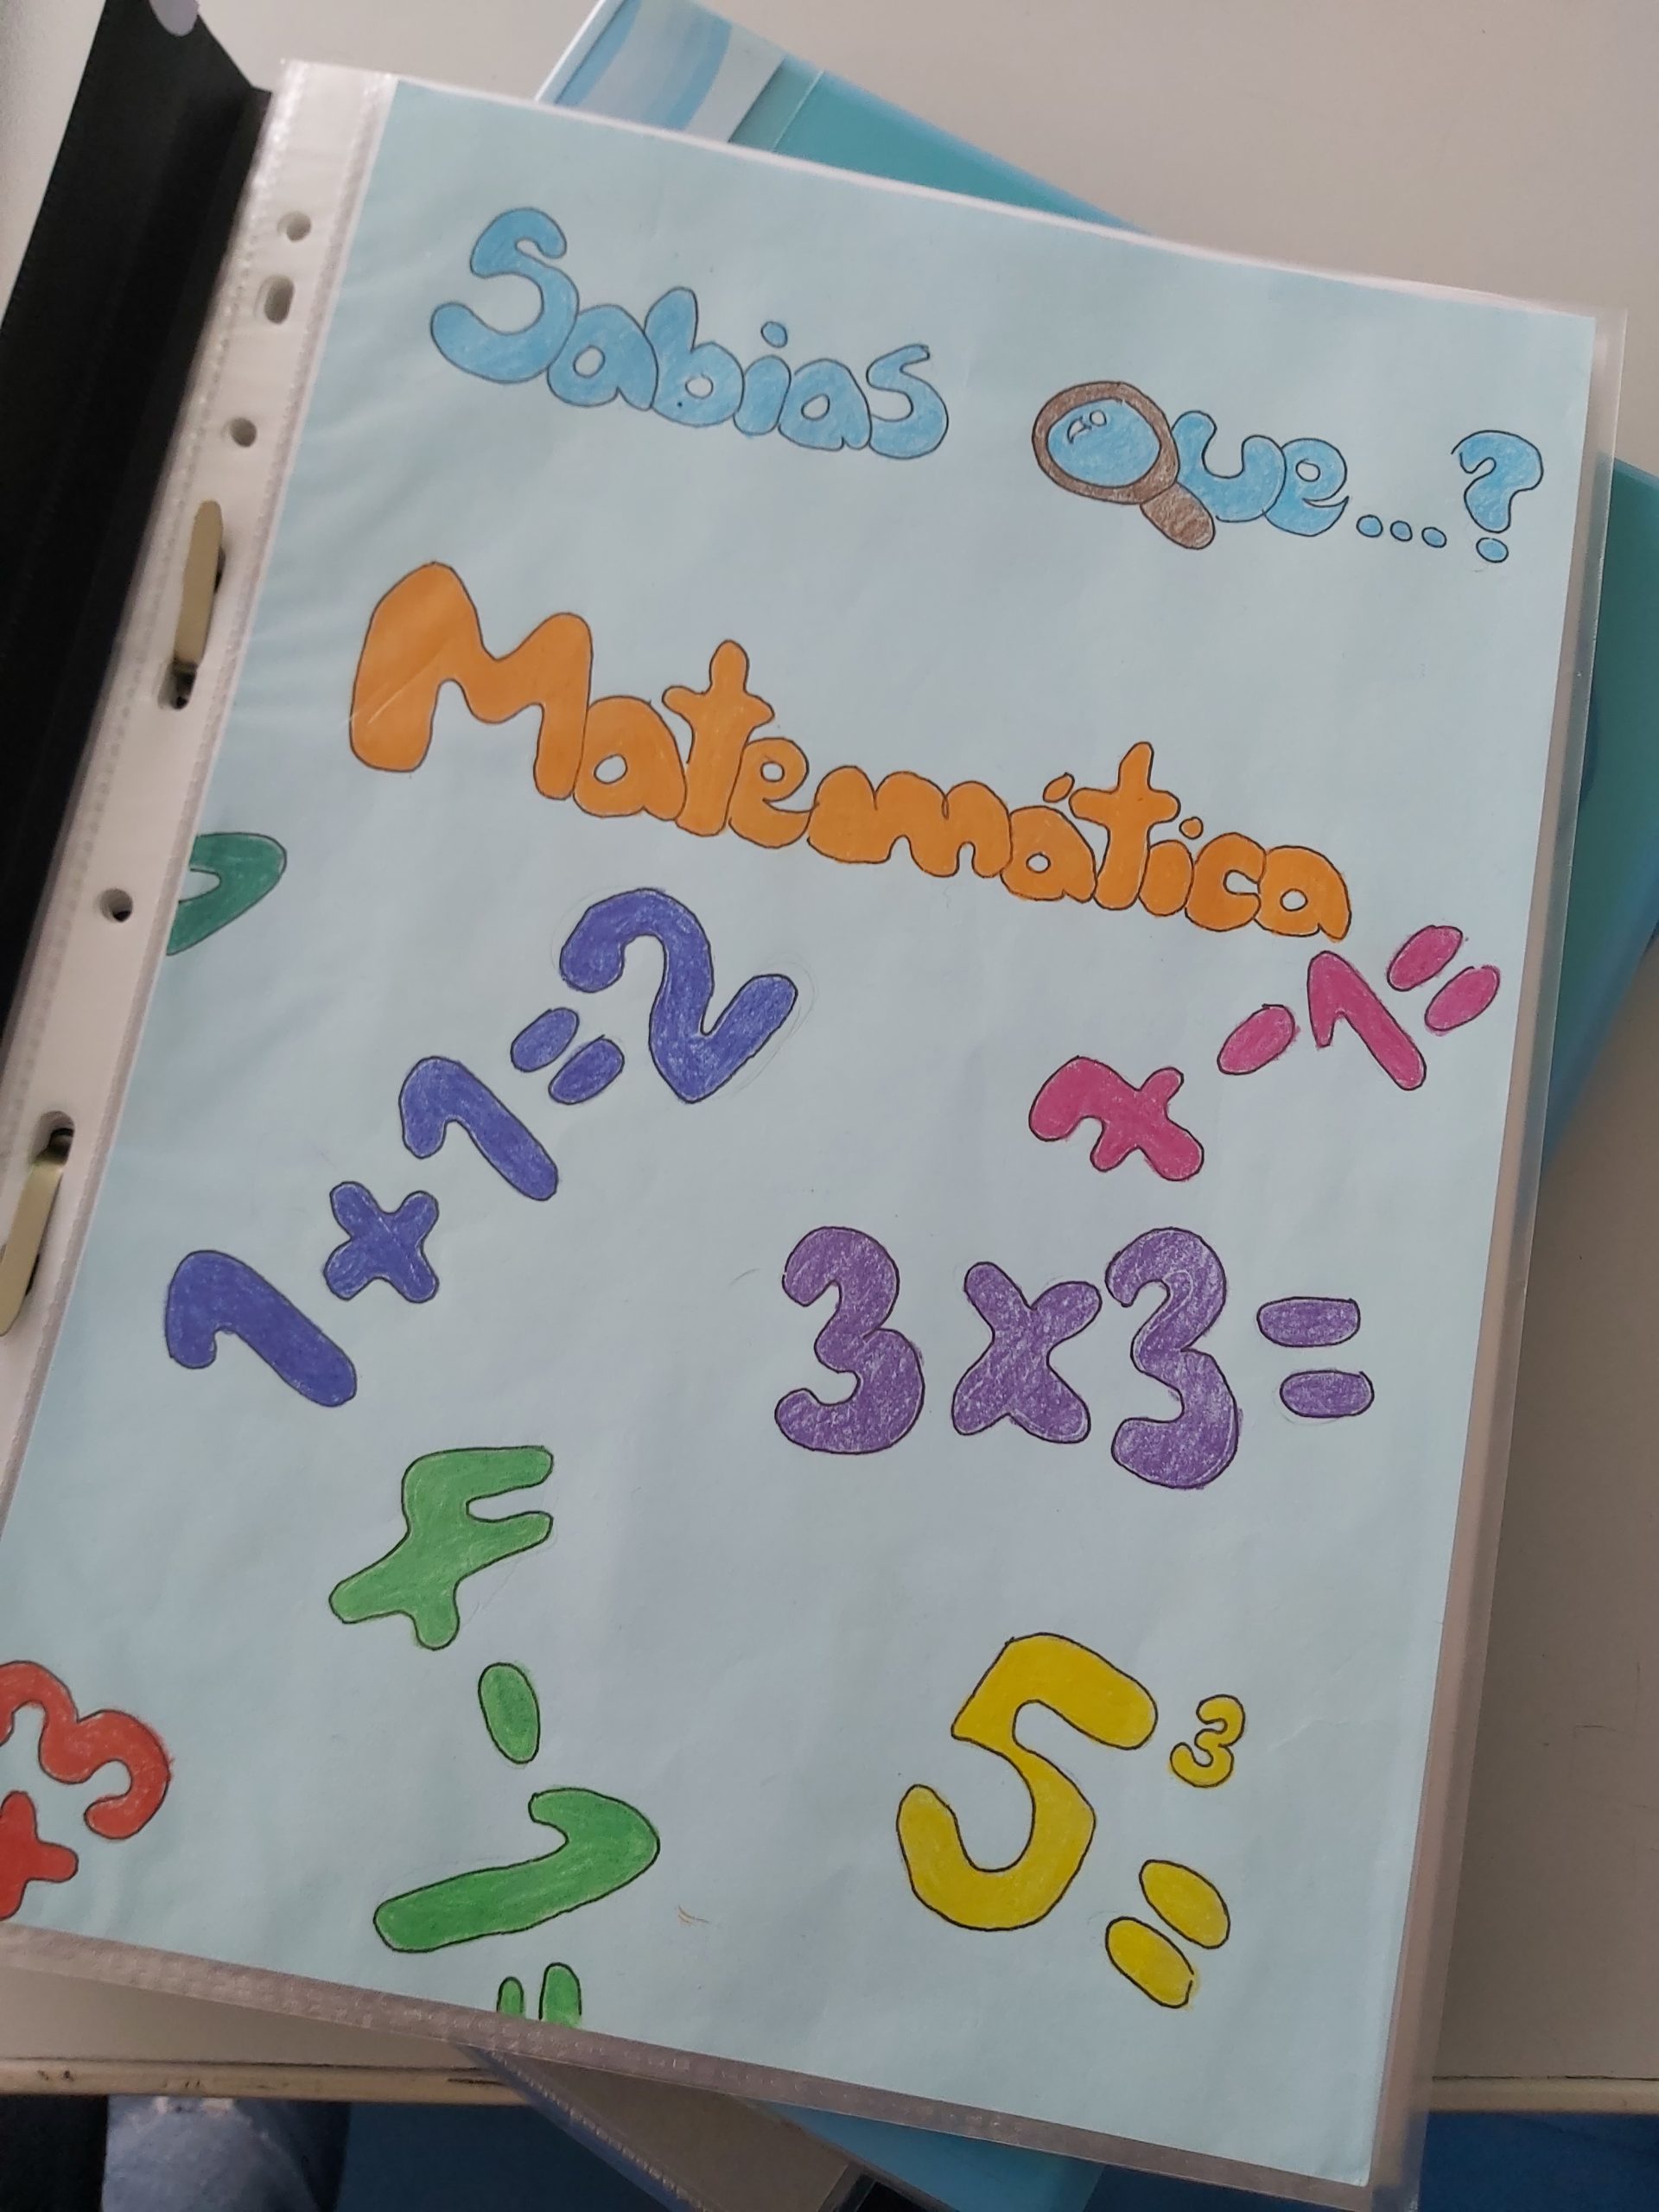 Sabias Que...?
Matemática
1+1=2
7-1=
3x3=
4-1=
5³=
+3